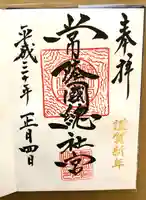 奉拝
謹賀新年
常陸國總社宮
平成三十年正月四日